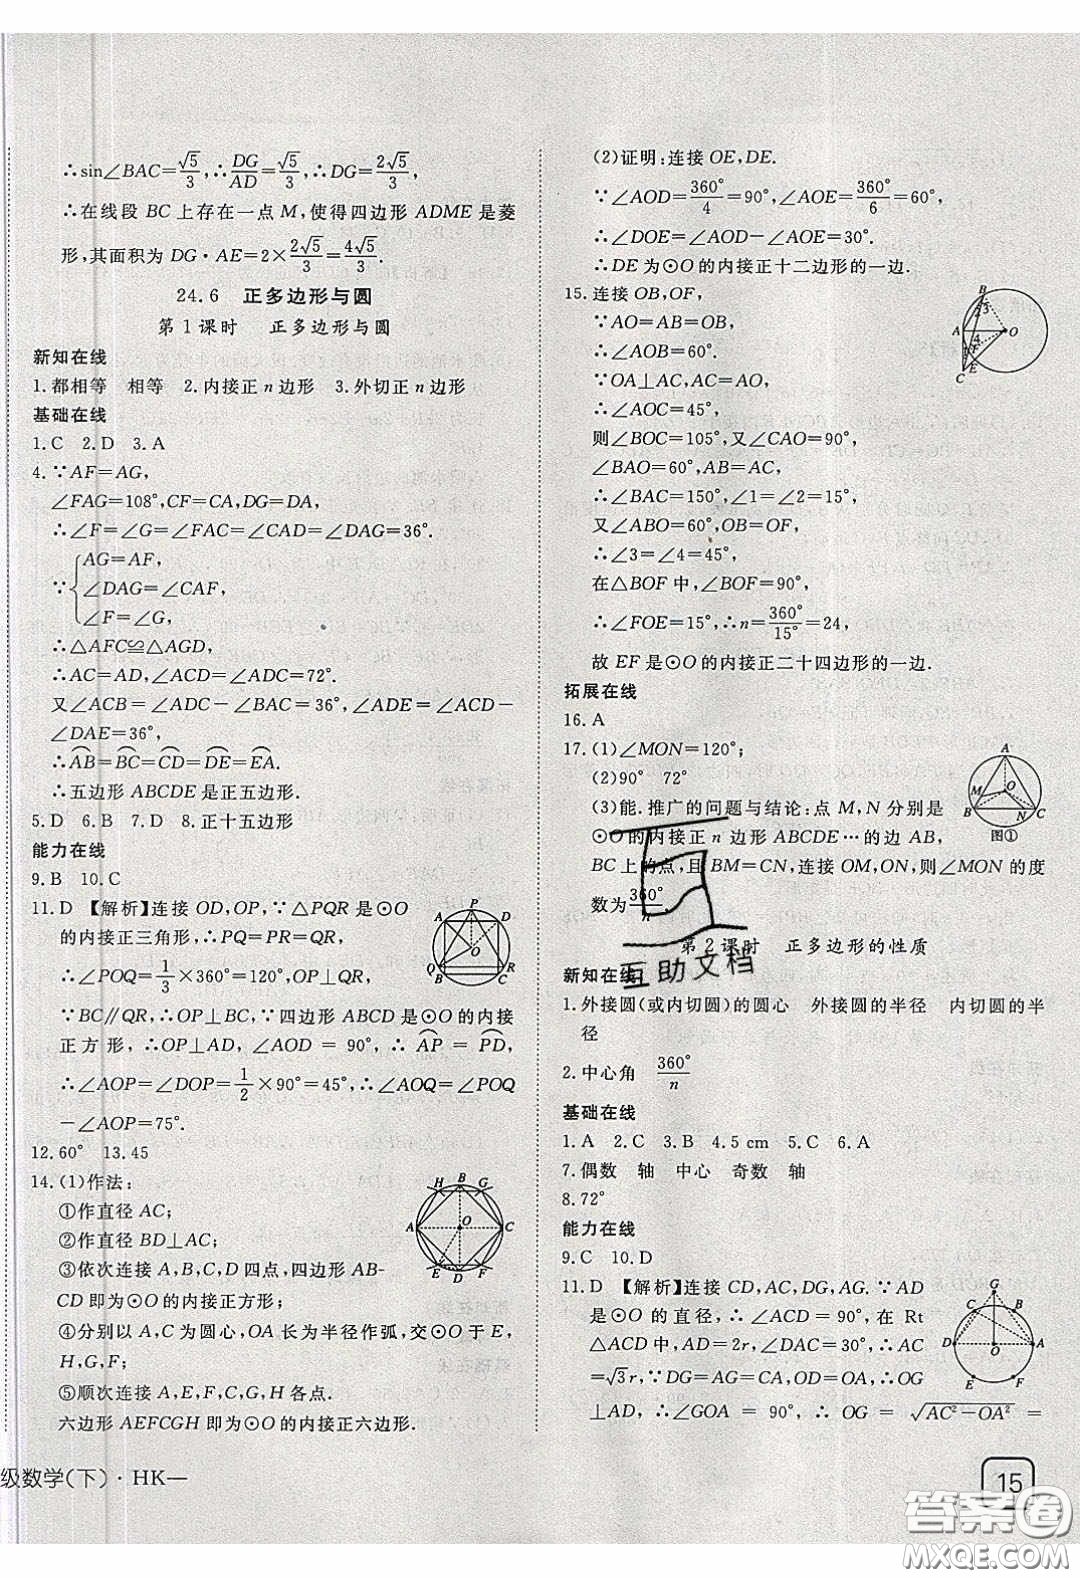 ∴sin∠BAC=√5/3,∴DG/AD=√5/3,∴DG=2√5/3.
∴在线段 BC 上存在一点 M,使得四边形 ADME 是菱
形,其面积为 DG·AE=2×2√5/3=4√5/3.
24.6 正多边形与圆
第1课时 正多边形与圆
新知在线
1.都相等 相等 2.内接正n边形 3.外切正n边形
基础在线
1.C 2.D 3.A
4.∵AF=AG,
∠FAG=108°,CF=CA,DG=DA,
∴∠F=∠G=∠FAC=∠CAD=∠DAG=36°.
∵{AG=AF,
∠DAG=∠CAF,
∠F=∠G,
∴△AFC≌△AGD,
∴AC=AD,∠ACD=∠ADC=72°.
又∠ACB=∠ADC-∠BAC=36°,∠ADE=∠ACD-
∠DAE=36°,
∴AB=BC=CD=DE=EA.
∴五边形 ABCDE 是正五边形.
5.D 6.B 7.D 8.正十五边形
能力在线
9.B 10.C
11.D 【解析】连接 OD,OP,∵△PQR 是⊙O
的内接正三角形,∴PQ=PR=QR,
∴∠POQ=1/3×360°=120°,OP⊥QR.
∵BC∥QR,∴OP⊥BC,∵四边形 ABCD 是⊙O 的内接
正方形,∴OP⊥AD,∠AOD=90°,∴AP=PD,
∴∠AOP=∠DOP=1/2×90°=45°,∴∠AOQ=∠POQ
-∠AOP=75°.
12.60° 13.45
14.(1)作法:
①作直径 AC;
②作直径 BD⊥AC;
③依次连接 A,B,C,D 四点,四边形 AB-
CD 即为⊙O 的内接正方形;
④分别以 A,C 为圆心,OA 长为半径作弧,交⊙O 于 E,
H,G,F;
⑤顺次连接 A,E,F,C,G,H 各点.
六边形 AEFCGH 即为⊙O 的内接正六边形.
级数学(下)·HK—
(2)证明:连接 OE,DE.
∵∠AOD=360°/4=90°,∠AOE=360°/6=60°,
∴∠DOE=∠AOD-∠AOE=30°.
∴DE 为⊙O 的内接正十二边形的一边.
15.连接 OB,OF,
∵AO=AB=OB,
∴∠AOB=60°.
∵OA⊥AC,OA=AC,
∴∠AOC=45°,
则∠BOC=105°,又∠CAO=90°,
∠BAO=60°,AB=AC,
∴∠BAC=150°,∠1=∠2=15°,
又∠ABO=60°,OB=OF,
∴∠3=∠4=45°,
在△BOF 中,∠BOF=90°,
∴∠FOE=15°,∴n=360°/15°=24,
故 EF 是⊙O 的内接正二十四边形的一边.
拓展在线
16.A
17.(1)∠MON=120°;
(2)90° 72°
(3)能.推广的问题与结论:点 M,N 分别是
⊙O的内接正 n 边形 ABCDE…的边 AB,
BC 上的点,且 BM=CN,连接 OM,ON,则∠MON 的度
数为360°/n.
图①
第2课时 正多边形的性质
互助文档
新知在线
1.外接圆(或内切圆)的圆心 外接圆的半径 内切圆的半
径
2.中心角 360°/n
基础在线
1.A 2.C 3.B 4.5 cm 5.C 6.A
7.偶数 轴 中心 奇数 轴
8.72°
能力在线
9.C 10.D
11.D 【解析】连接 CD,AC,DG,AG.∵AD
是⊙O 的直径,∴∠ACD=90°,在 Rt
△ACD中,AD=2r,∠DAC=30°,∴AC
=√3r,∵DG=AG=CA,OD=OA,∴OG
⊥AD,∴∠GOA=90°,∴OG=√AC²-OA²=
15
答案圈
MXQE.COM